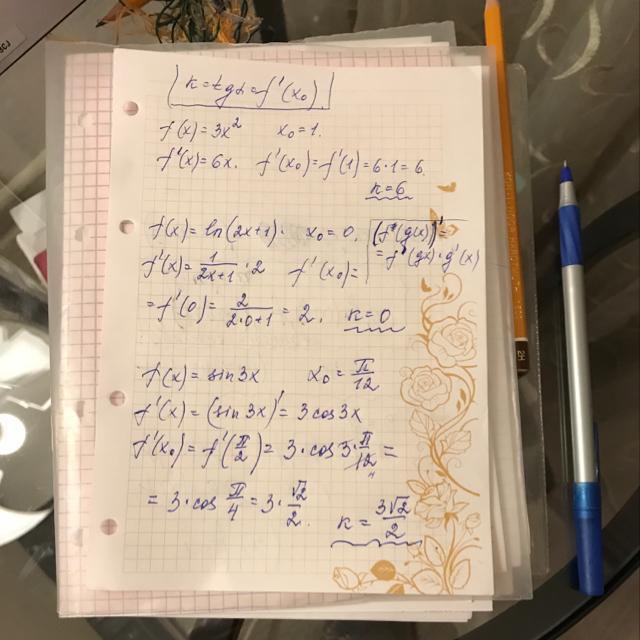 k = tgα = f'(x₀)
f(x) = 3x² x₀ = 1.
f'(x) = 6x. f'(x₀) = f'(1) = 6·1 = 6.
k = 6
f(x) = ln(2x+1). x₀ = 0. (f(g(x))' =
= f'(gx)·g'(x)
f'(x) = 1/(2x+1) · 2 f'(x₀) =
= f'(0) = 2/(2·0+1) = 2. k = 0
f(x) = sin3x x₀ = π/12
f'(x) = (sin3x)' = 3cos3x
f'(x₀) = f'(π/2) = 3·cos3·π/12 =
= 3·cos π/4 = 3·√2/2. k = 3√2/2